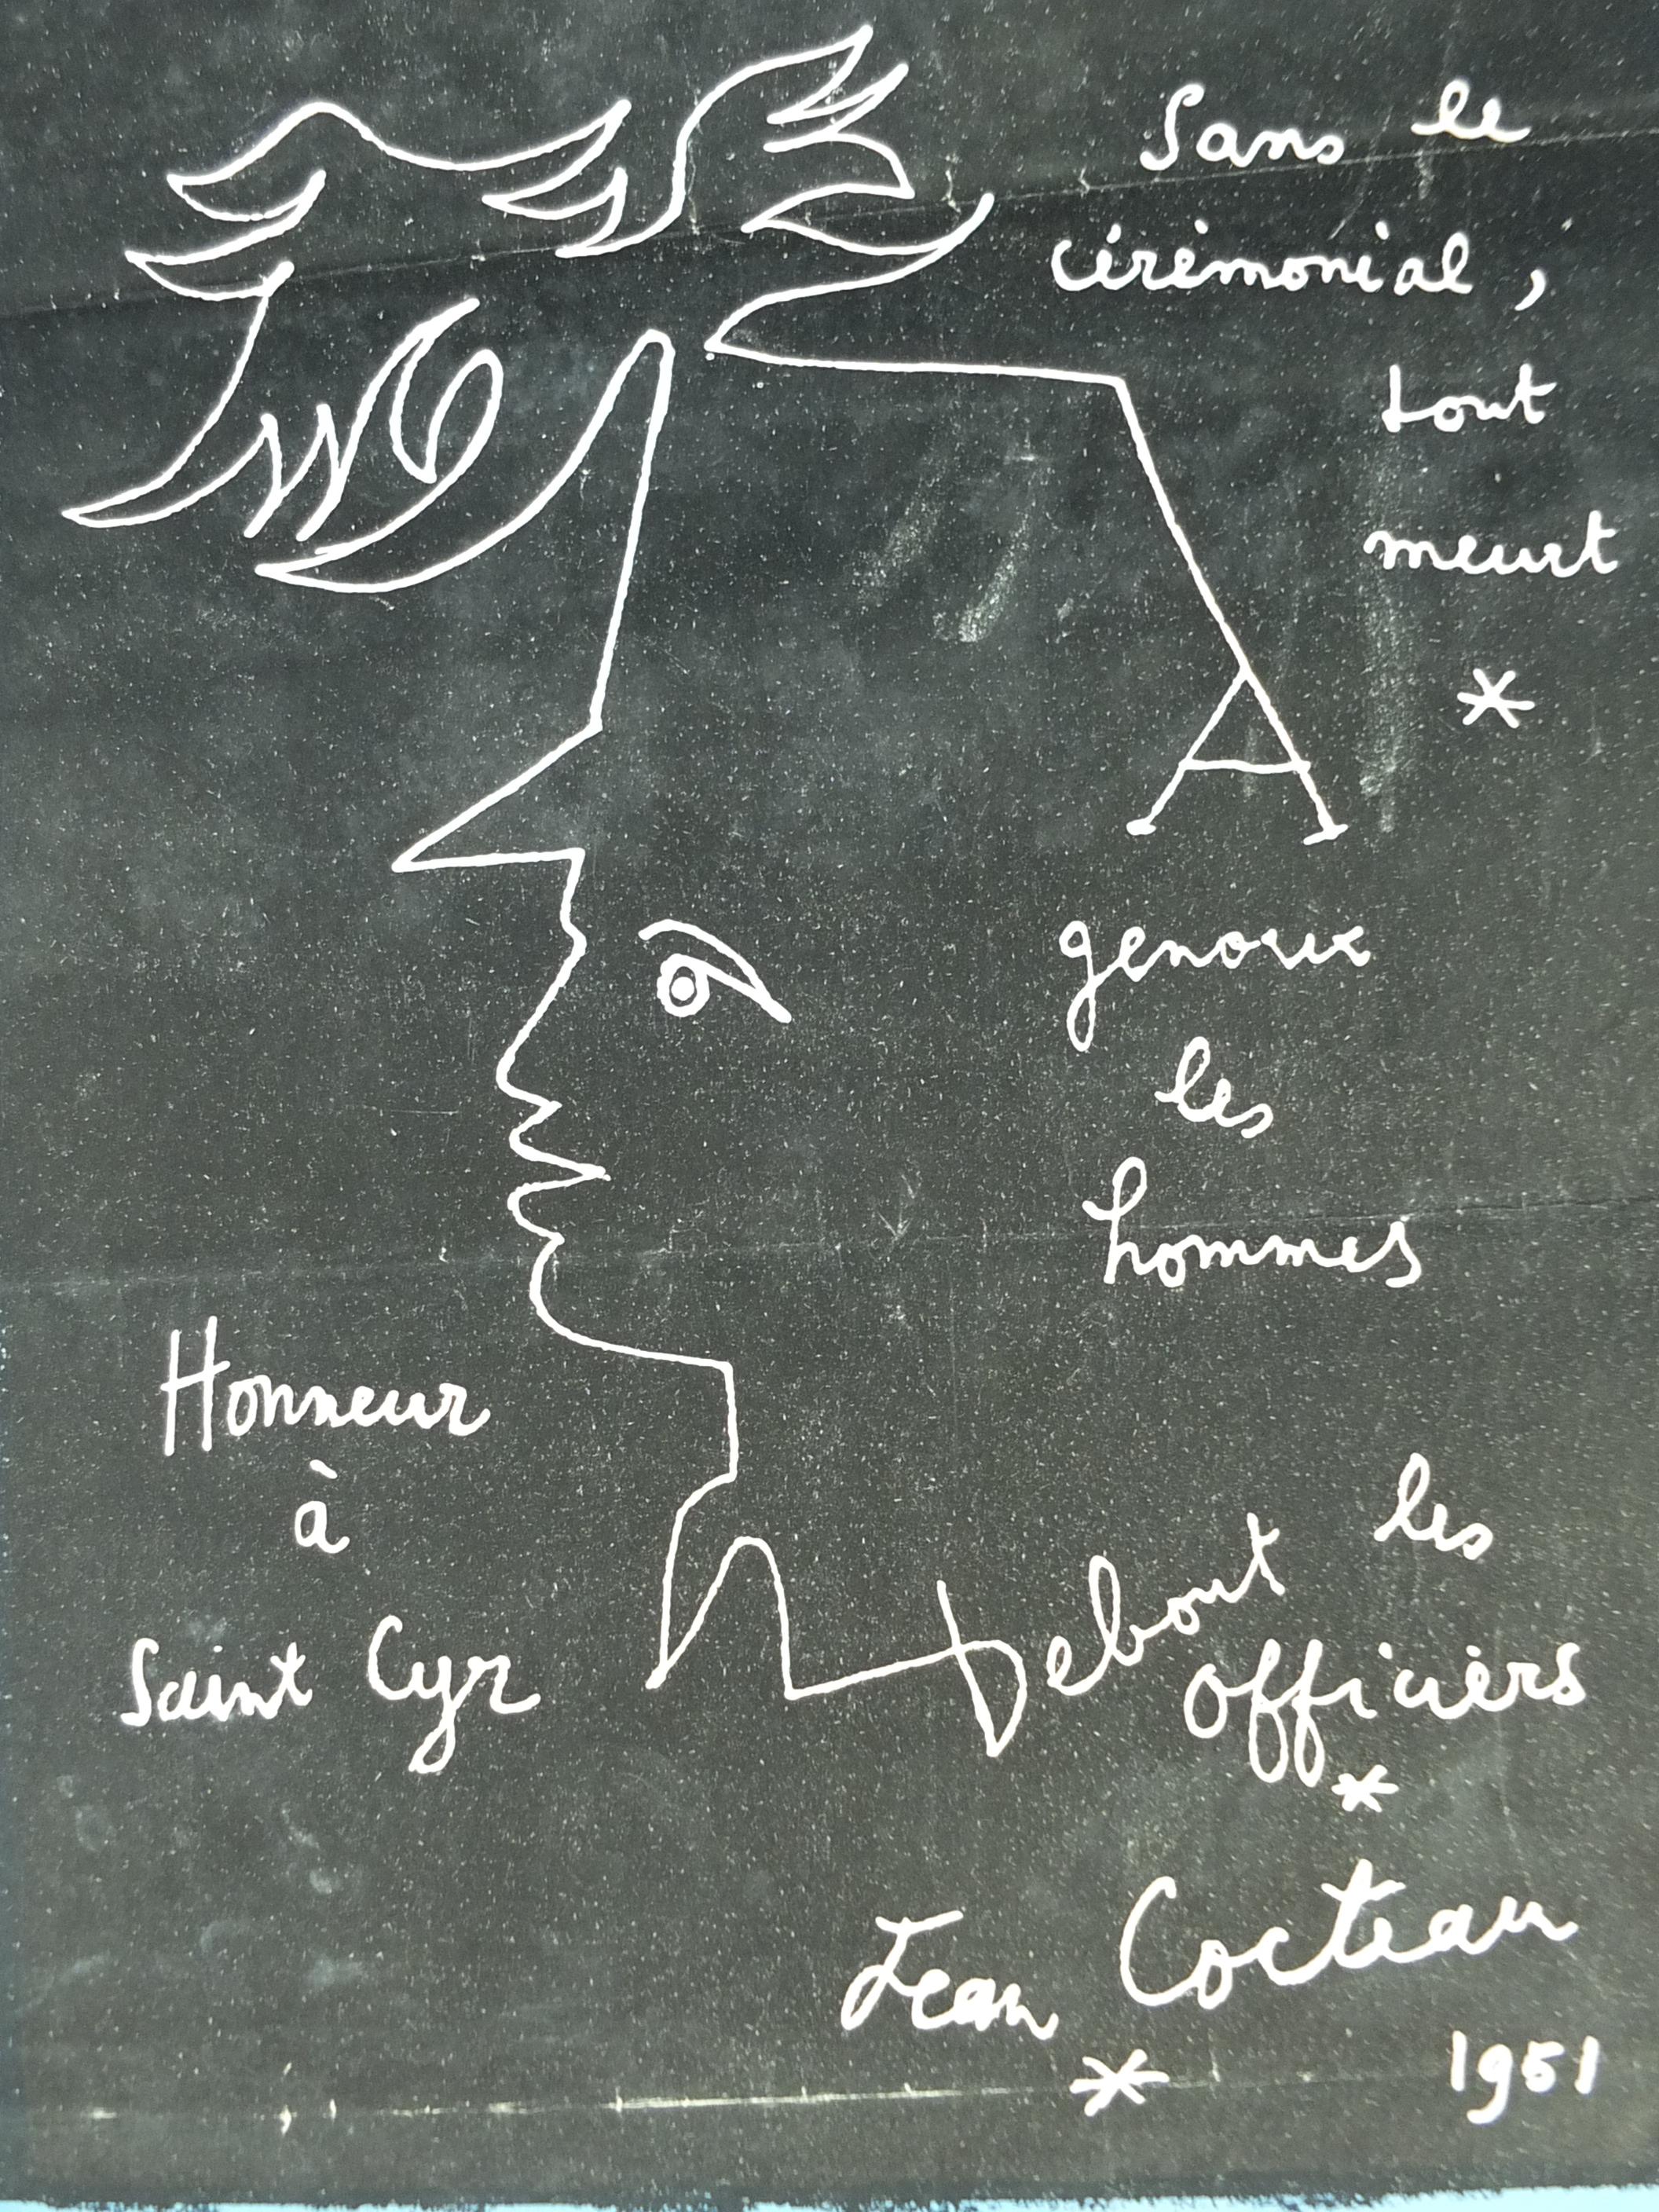 Sans le
cérémonial,
tout
meurt
*
A
genoux
les
hommes
Honneur
à
Saint Cyr
Debout les
officiers
*
Jean Cocteau
*
1951